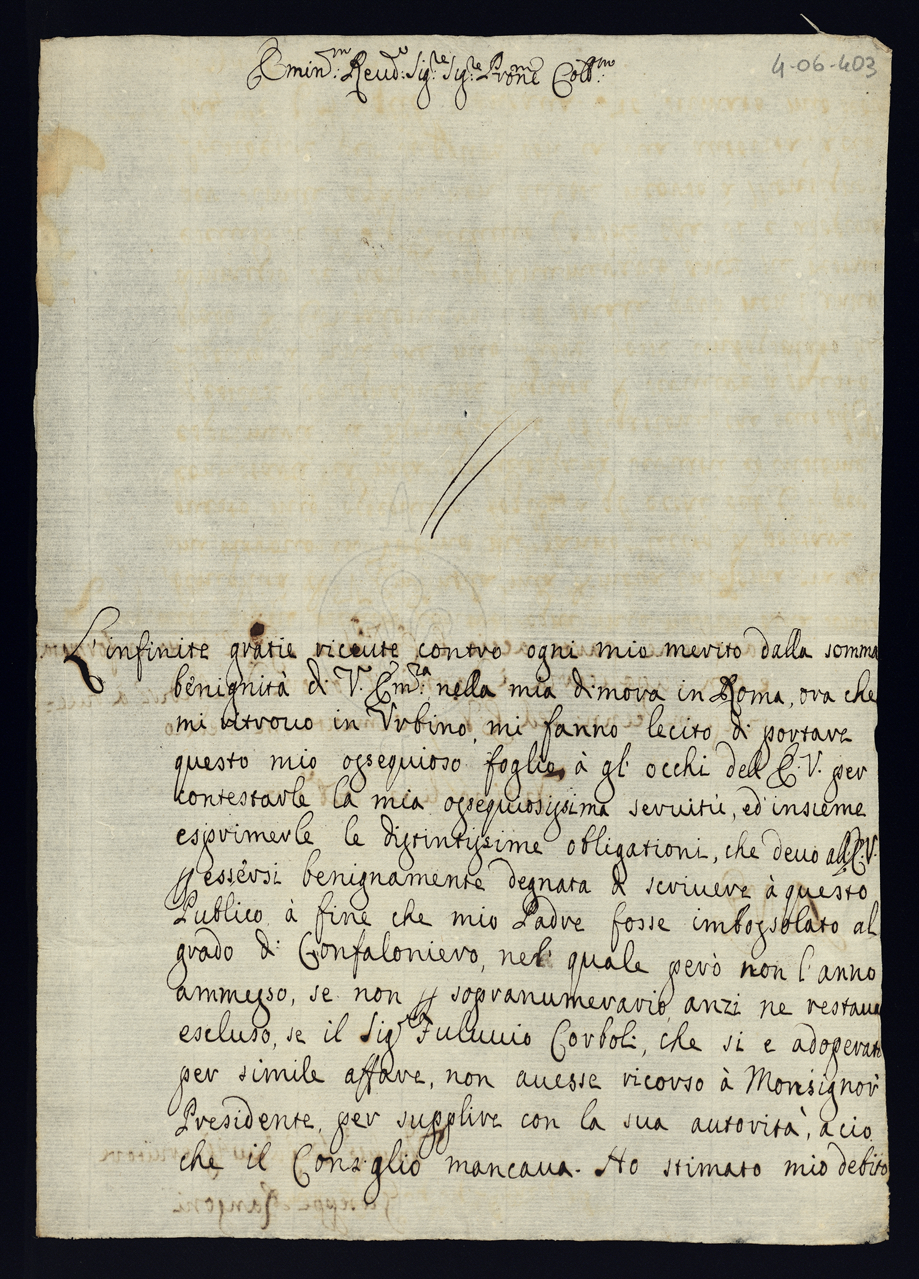 Emin.mo Reud.o Sig.re Sig.re Prone Coll.mo
4-06-403
L'infinite gratie riceute contro ogni mio merito dalla somma
benignità di V. Em.za nella mia dimora in Roma, ora che
mi ritrouo in Vrbino, mi fanno lecito di portare
questo mio ossequioso foglio à gl'occhi dell'E.V. per
contestarle la mia ossequiosissima seruitù, ed insieme
esprimerle le distintissime obligationi, che deuo all'E.V.
p essersi benignamente degnata di scriuere à questo
Publico à fine che mio Padre fosse imbossolato al
grado di Confaloniero, nel quale però non l'anno
ammesso, se non p sopranumerario, anzi ne restaua
escluso, se il Sig.r Fuluuio Corboli, che si e adoperato
per simile affare, non auesse ricorso à Monsignor
Presidente, per supplire con la sua autorità, a cio
che il Consiglio mancaua. Ho stimato mio debito